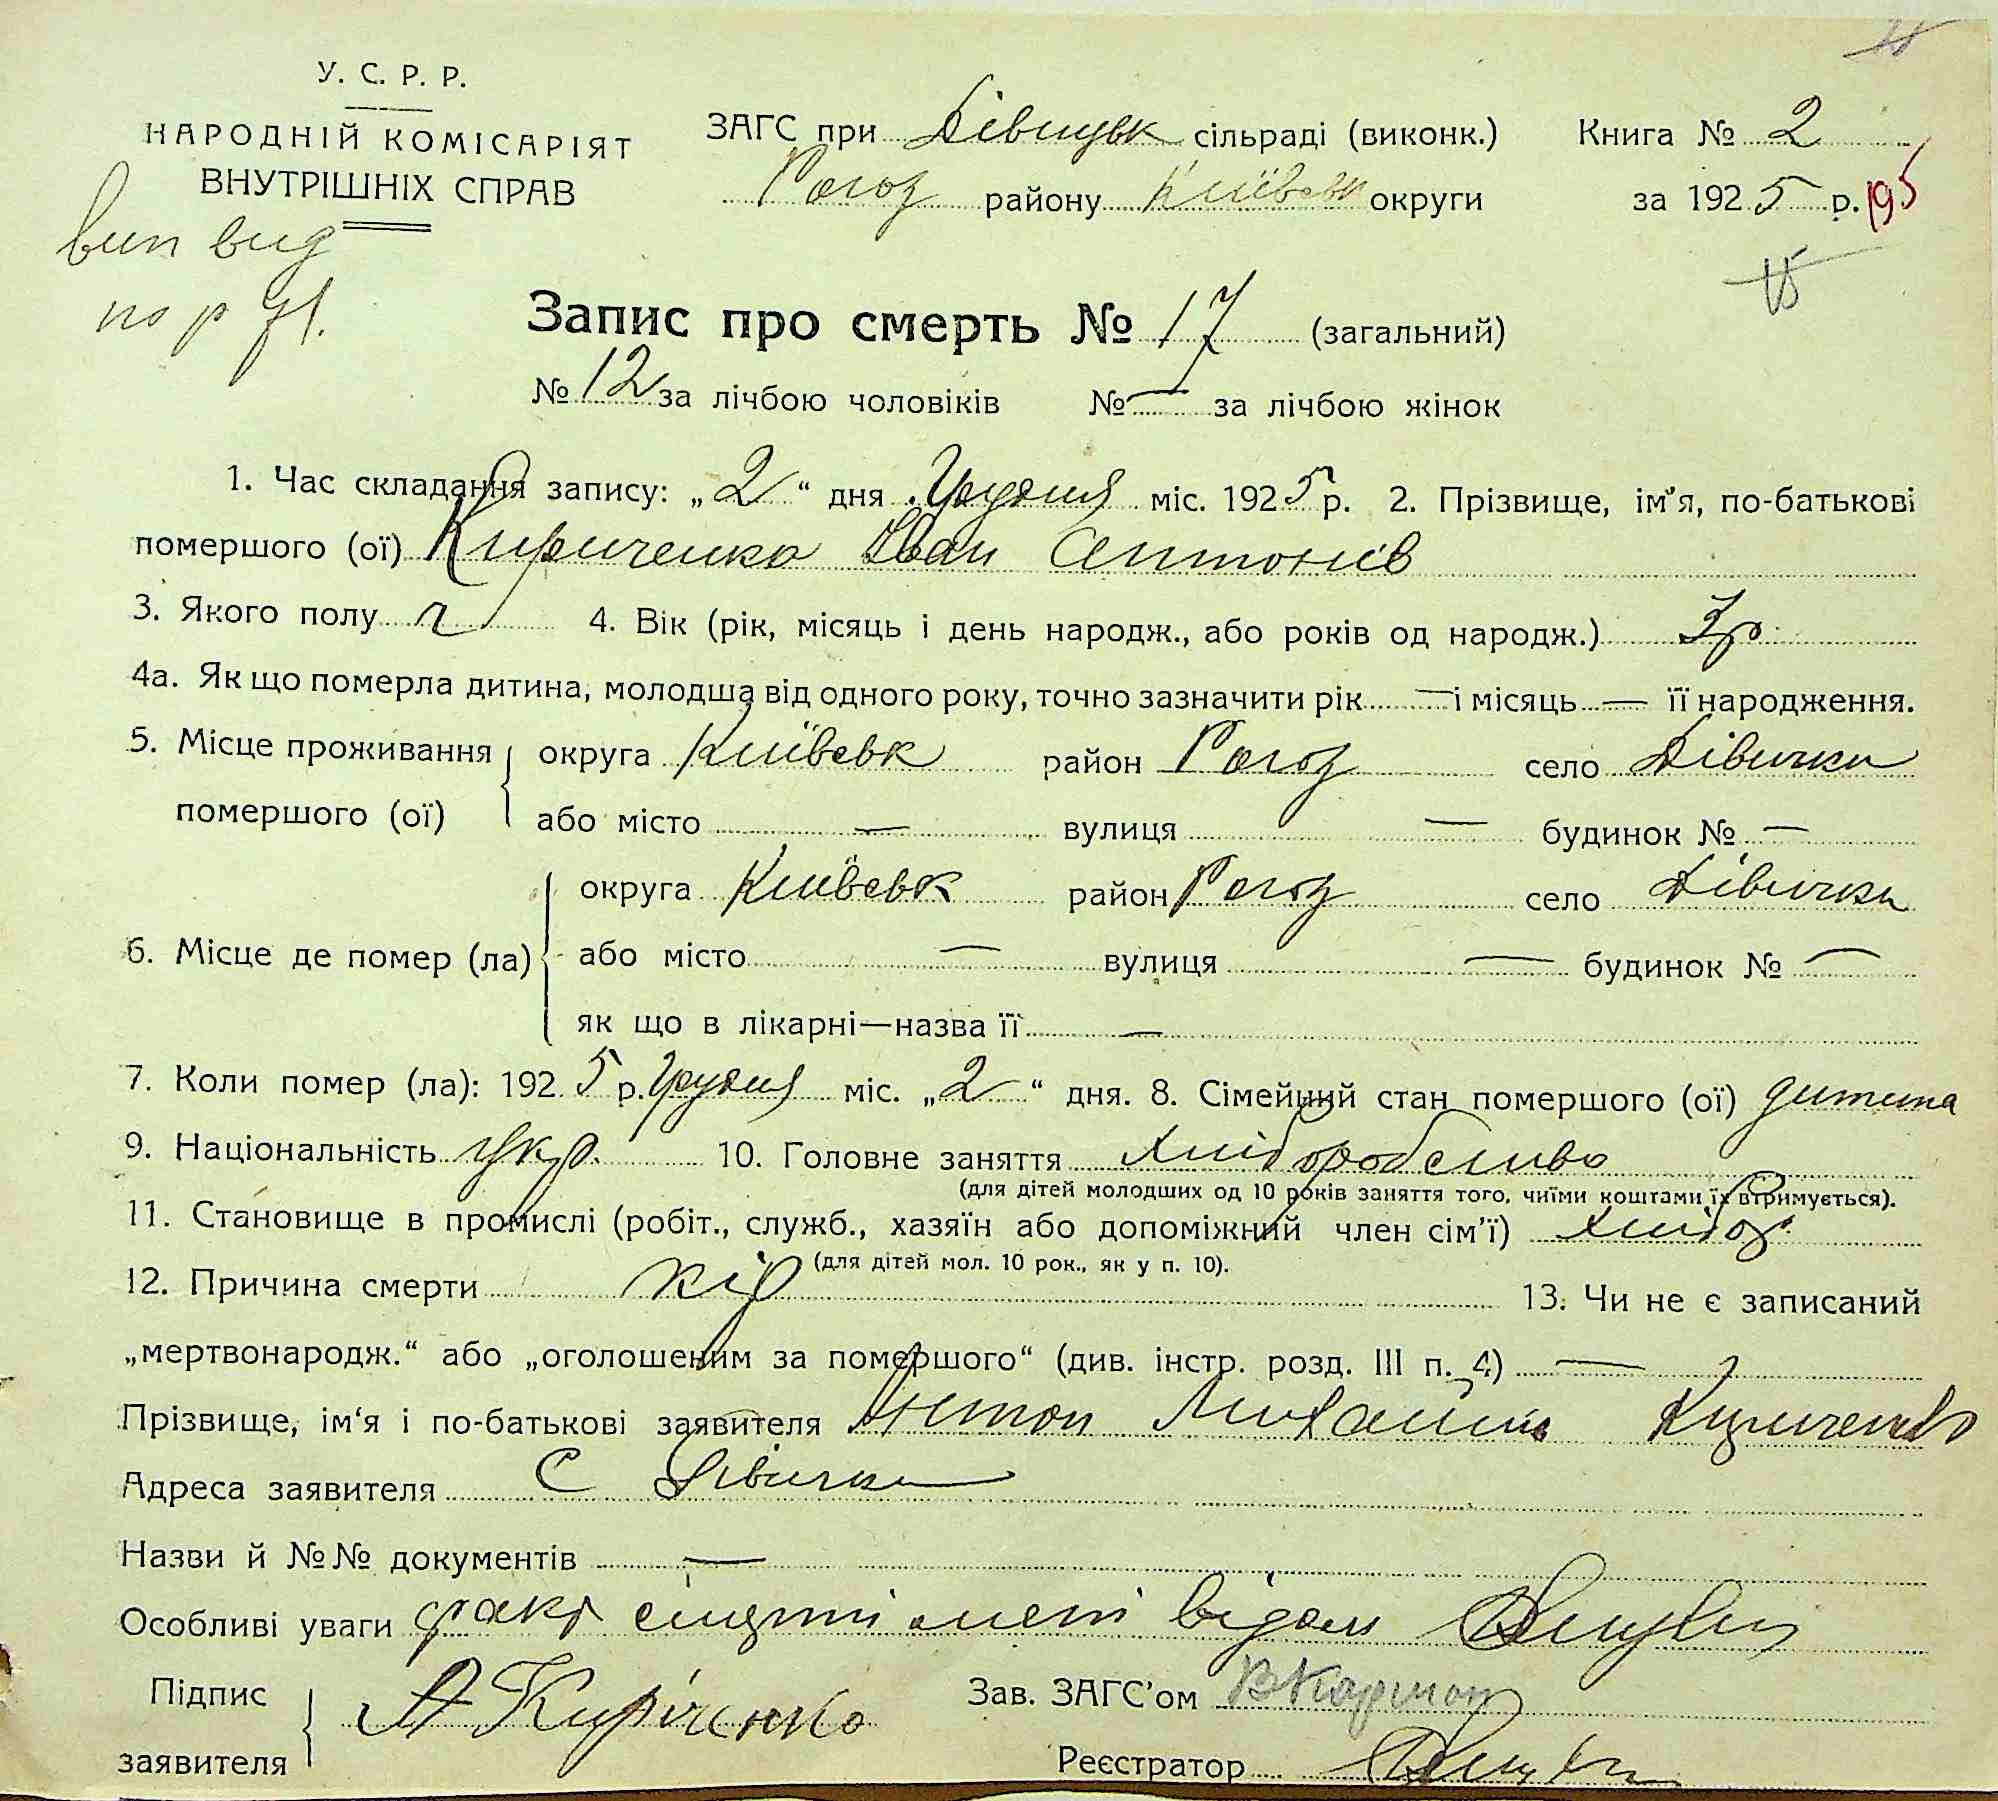 У. С. Р. Р.
НАРОДНІЙ КОМІСАРІЯТ
ВНУТРІШНІХ СПРАВ
вип вид
ЗАГС при Дівицьк сільраді (виконк.) Книга № 2
Рогоз району Київськ округи за 1925 р. 195
Запис про смерть № 17 (загальний)
№ 12 за лічбою чоловіків № — за лічбою жінок
1. Час складання запису: „2“ дня Грудня міс. 1925 р. 2. Прізвище, ім'я, по-батькові
помершого (ої) Кириченко Іван Антонів
3. Якого полу ч 4. Вік (рік, місяць і день народж., або років од народж.) 3 р
4а. Як що померла дитина, молодша від одного року, точно зазначити рік — і місяць — її народження.
5. Місце проживання округа Київськ район Рогоз село Дівички
помершого (ої) або місто — вулиця — будинок № —
округа Київськ район Рогоз село Дівички
6. Місце де помер (ла) або місто — вулиця — будинок № —
як що в лікарні—назва її —
7. Коли помер (ла): 1925 р. Грудня міс. „2“ дня. 8. Сімейний стан помершого (ої) дитина
9. Національність укр. 10. Головне заняття хліборобство
(для дітей молодших од 10 років заняття того, чиїми коштами їх втримується).
11. Становище в промислі (робіт., служб., хазяїн або допоміжний член сім'ї) хлібор.
(для дітей мол. 10 рок., як у п. 10).
12. Причина смерти кір 13. Чи не є записаний
„мертвонародж.“ або „оголошеним за помершого“ (див. інстр. розд. III п. 4) —
Прізвище, ім'я і по-батькові заявителя Антон Михайлів Кириченко
Адреса заявителя С Дівички
Назви й №№ документів —
Особливі уваги факт смерті мені відом
Підпис заявителя А Киріченко
Зав. ЗАГС'ом
Реєстратор